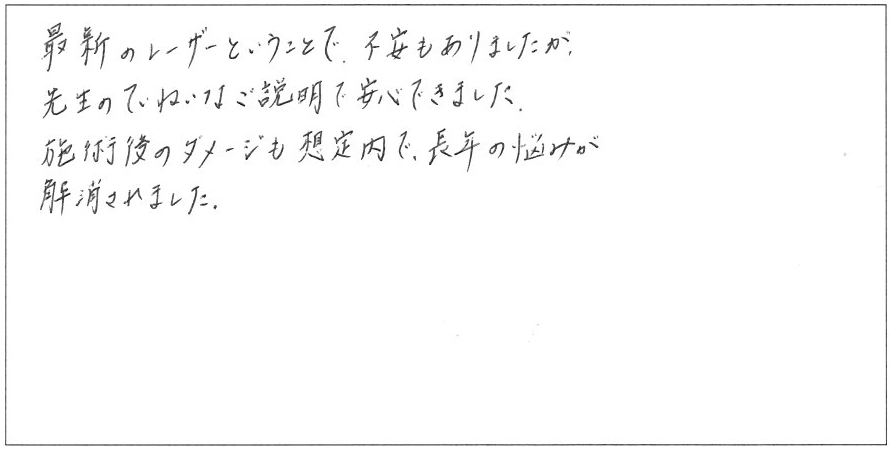 最新のレーザーということで、不安もありましたが、
先生のていねいなご説明で安心できました。
施術後のダメージも想定内で、長年の悩みが
解消されました。